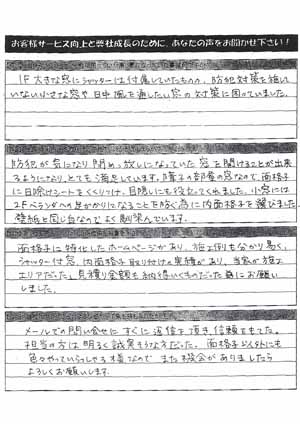 お客様サービス向上と弊社成長のために、あなたの声をお聞かせ下さい！
1F大きな窓にシャッターは付属していたものの、防犯対策を施して
いない小さな窓や日中風を通したい窓の対策に困っていました。
防犯が気になり閉めっ放しになっていた窓を開けることが出来
るようになり、とても満足しています。障子の部屋の窓なので、面格子
に日除けシートをくくりつけ、目隠しにも役立ってくれました。小窓には
2Fベランダへの足がかりになることを防ぐ為に内面格子を選びました。
壁紙と同じ白なのでよく馴染んでいます。
面格子に特化したホームページがあり、施工例も分かり易く、
シャッター付窓、内面格子取り付けの実績があり、当家が施工
エリアだった。見積り金額も納得いくものだった為にお願い
しました。
メールでの問い合せにすぐに返信を頂き、信頼をもてた。
担当の方は明るく誠実そうな方だった。面格子以外にも
色々やっていらっしゃる様なので また機会がありましたら
よろしくお願いします。